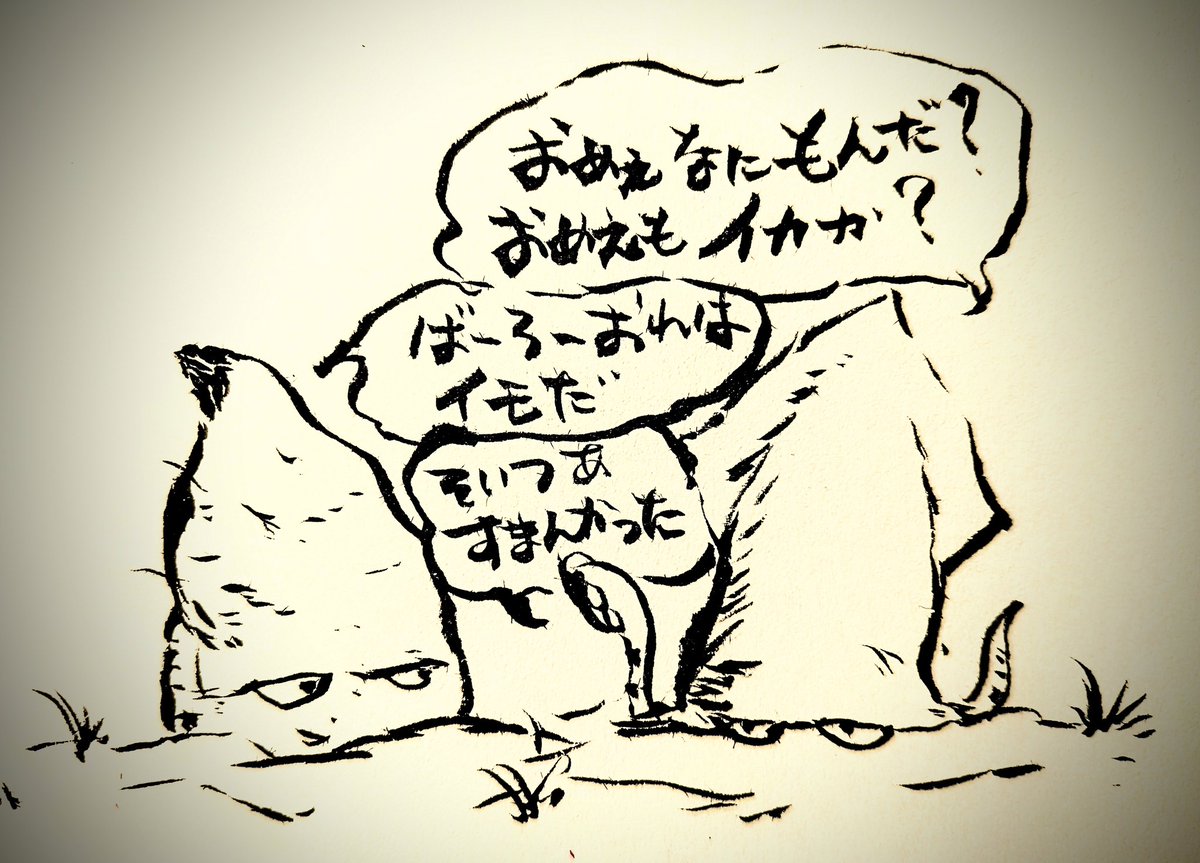 おめぇなにもんだ?
おめえもイカか?
ばーろーおれは
イモだ
そいつぁ
すまんかった